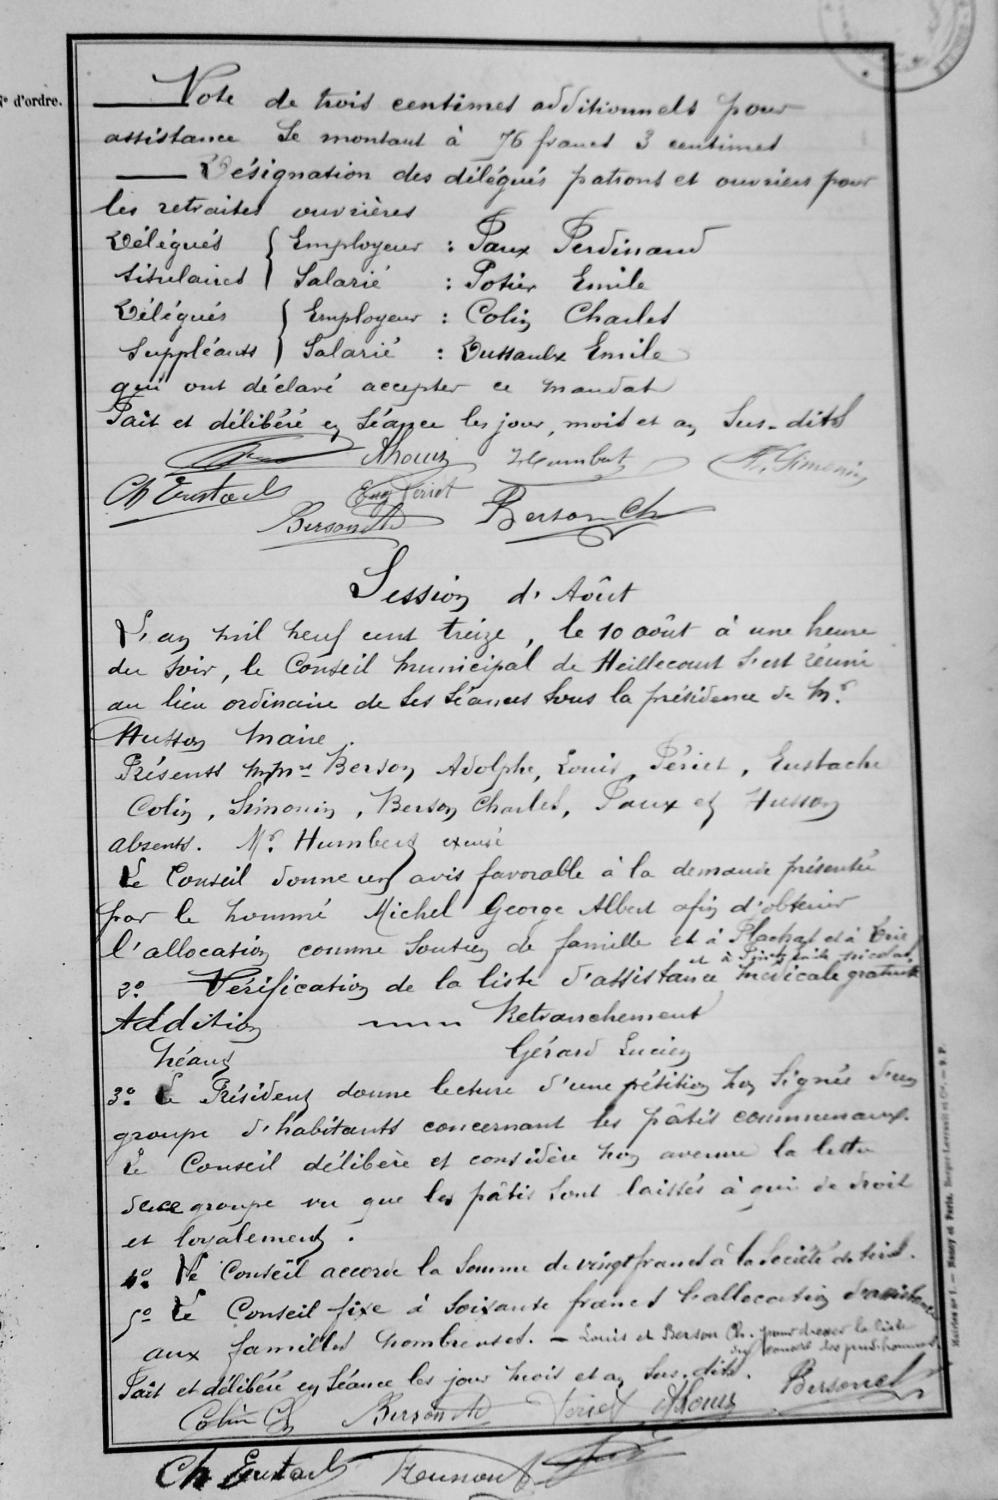 N° d'ordre.
Vote de trois centimes additionnels pour
assistance se montant à 76 francs 3 centimes
Désignation des délégués patrons et ouvriers pour
les retraites ouvrières
Délégués { Employeur : Paux Ferdinand
titulaires { Salarié : Potier Emile
Délégués { Employeur : Colin Charles
Suppléants } Salarié : Dussaulx Emile
qui ont déclaré accepter ce mandat
Fait et délibéré en séance les jour, mois et an Sus-dits
ALouis Humbert F. Simonin
Ch Eustache Eug Périet
Berson Ad Berson Ch
Session d'Août
L'an mil neuf cent treize, le 10 août à une heure
du soir, le Conseil municipal de Heillecourt s'est réuni
au lieu ordinaire de ses séances sous la présidence de Mr
Husson Maire.
Présents MMrs Berson Adolphe, Louis, Périet, Eustache
Colin, Simonin, Berson Charles, Paux et Husson
absents. Mr. Humbert excusé
Le Conseil donne un avis favorable à la demande présentée
par le nommé Michel George Albert afin d'obtenir
l'allocation comme soutien de famille et à
et à
2° Vérification de la liste d'assistance médicale gratuite
Addition Retranchement
Néant Gérard Lucien
3° Le Président donne lecture d'une pétition non signée d'un
groupe d'habitants concernant les pâtis communaux.
Le Conseil délibère et considère non avenue la lettre
de ce groupe vu que les pâtis sont laissés à qui de droit
et loyalement.
4° Le Conseil accorde la somme de vingt francs à la Société de tir.
5° Le Conseil fixe à soixante francs l'allocation d'assistance
aux familles nombreuses. – Louis et Berson Ch. pour dresser la liste
du conseil des prud'hommes.
Fait et délibéré en séance les jour mois et an Sus-dits.
Colin Ch Berson Ad Périet ALouis Berson Ch
Ch Eustache